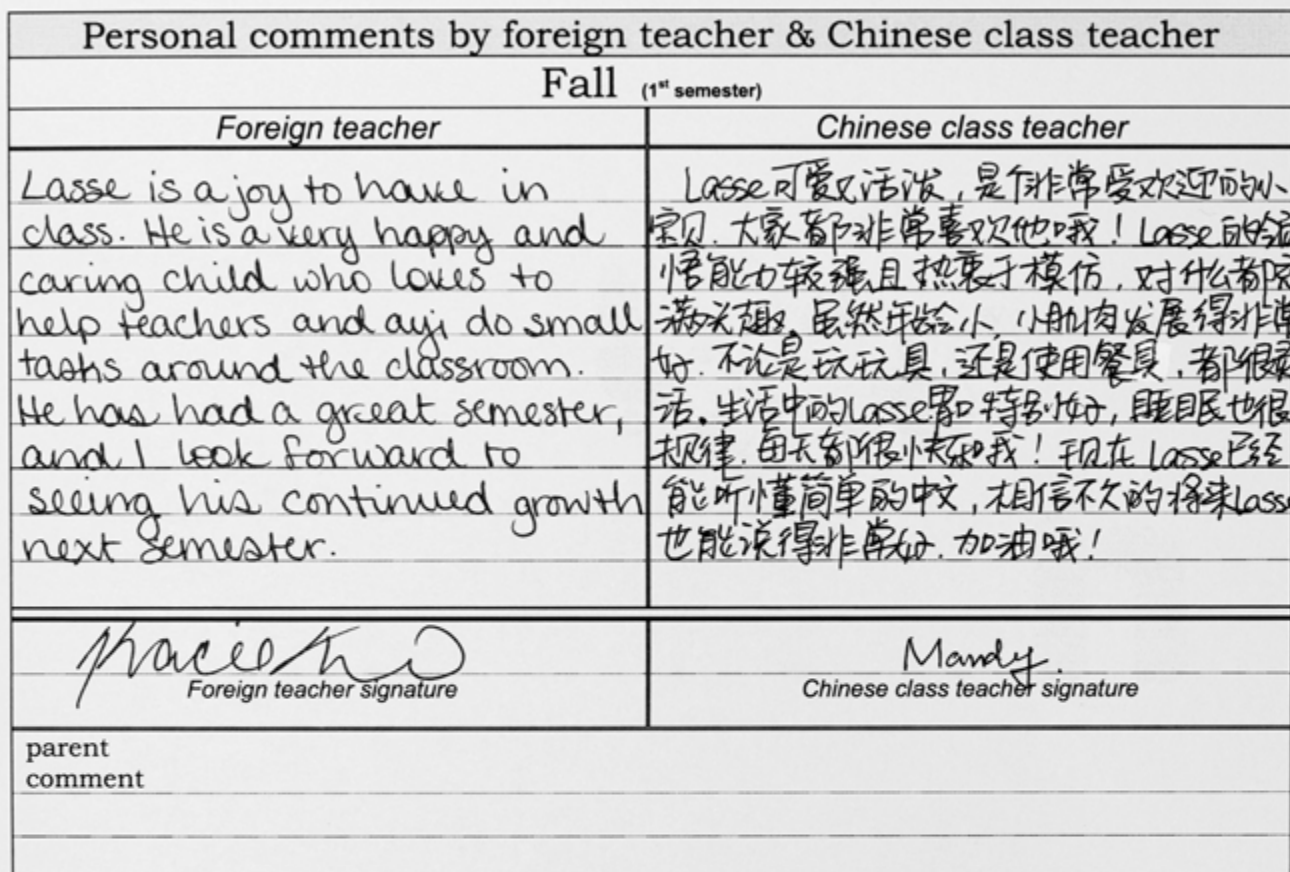 Personal comments by foreign teacher & Chinese class teacher
Fall (1st semester)
Foreign teacher
Lasse is a joy to have in
class. He is a very happy and
caring child who loves to
help teachers and ayi do small
tasks around the classroom.
He has had a great semester,
and I look forward to
seeing his continued growth
next semester.
Chinese class teacher
Lasse可爱又活泼,是个非常受欢迎的小
宝贝.大家都非常喜欢他哦!Lasse的领
悟能力较强且热衷于模仿,对什么都充
满兴趣。虽然年龄小,小肌肉发展得非常
好.不论是玩玩具,还是使用餐具,都很灵
活。生活中的Lasse胃口特别好,睡眠也很
规律.每天都很快乐哦!现在Lasse已经
能听懂简单的中文,相信不久的将来Lasse
也能说得非常好.加油哦!
Foreign teacher signature
Mandy.
Chinese class teacher signature
parent
comment